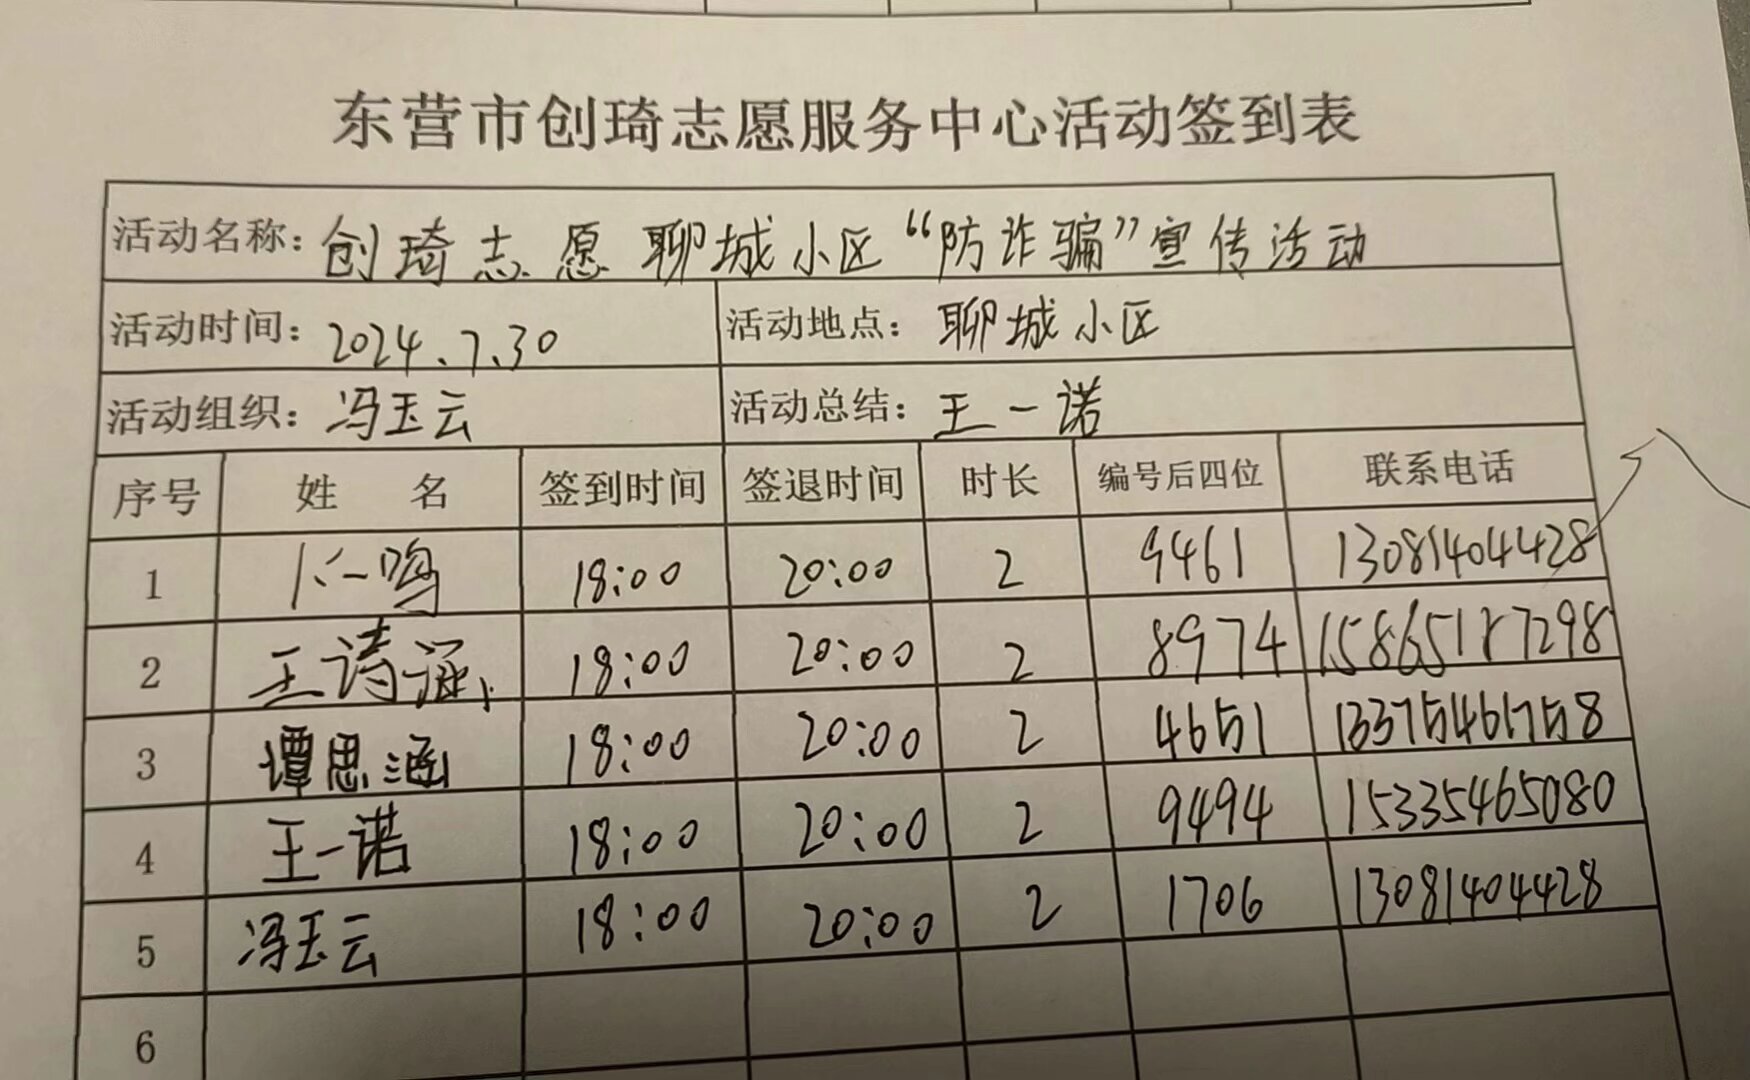 东营市创琦志愿服务中心活动签到表
活动名称：创琦志愿聊城小区“防诈骗”宣传活动
活动时间：2024.7.30 活动地点：聊城小区
活动组织：冯玉云 活动总结：王一诺
序号 姓 名 签到时间 签退时间 时长 编号后四位 联系电话
1 卜一鸣 18:00 20:00 2 9461 13081404428
2 王诗涵 18:00 20:00 2 8974
3 谭思涵 18:00 20:00 2 4651 13375461758
4 王一诺 18:00 20:00 2 9494 15335465080
5 冯玉云 18:00 20:00 2 1706 13081404428
6